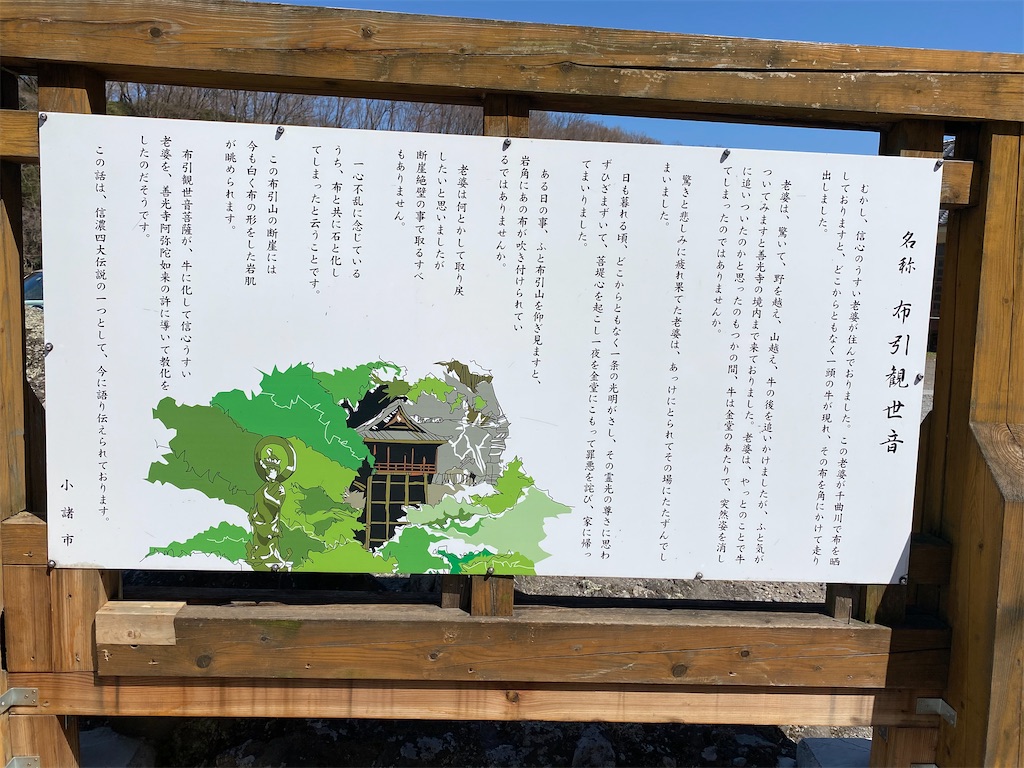 名称　布引観世音
むかし、信心のうすい老婆が住んでおりました。この老婆が千曲川で布を晒
しておりますと、どこからともなく一頭の牛が現れ、その布を角にかけて走り
出しました。
老婆は、驚いて、野を越え、山越え、牛の後を追いかけましたが、ふと気が
ついてみますと善光寺の境内まで来ておりました。老婆は、やっとのことで牛
に追いついたのかと思ったのもつかの間、牛は金堂のあたりで、突然姿を消し
てしまったのではありませんか。
驚きと悲しみに疲れ果てた老婆は、あっけにとられてその場にたたずんでし
まいました。
日も暮れる頃、どこからともなく一条の光明がさし、その霊光の尊さに思わ
ずひざまずいて、菩堤心を起こし一夜を金堂にこもって罪悪を詫び、家に帰っ
てまいりました。
ある日の事、ふと布引山を仰ぎ見ますと、
岩角にあの布が吹き付けられてい
るではありませんか。
老婆は何とかして取り戻
したいと思いましたが
断崖絶壁の事で取るすべ
もありません。
一心不乱に念じている
うち、布と共に石と化し
てしまったと云うことです。
この布引山の断崖には
今も白く布の形をした岩肌
が眺められます。
布引観世音菩薩が、牛に化して信心うすい
老婆を、善光寺阿弥陀如来の許に導いて教化を
したのだそうです。
この話は、信濃四大伝説の一つとして、今に語り伝えられております。
小諸市